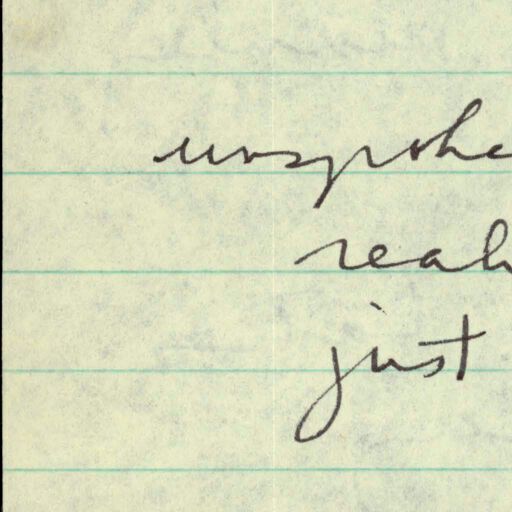 unspoke
real
just